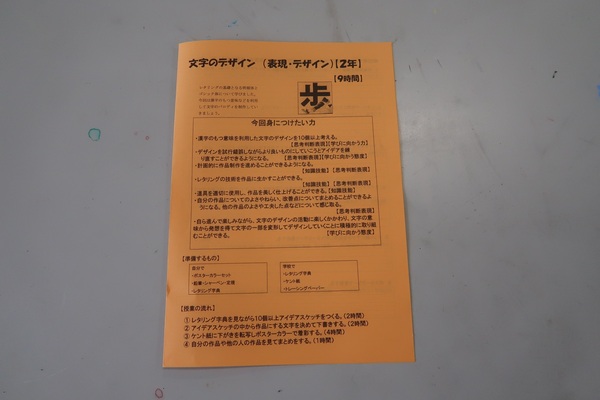 文字のデザイン (表現・デザイン)【2年】
【9時間】
歩
今回身につけたい力
・漢字のもつ意味を利用した文字のデザインを10個以上考える。
【思考判断表現】【学びに向かう力】
・デザインを試行錯誤しながらより良いものにしていこうとアイデアを練
り直すことができるようになる。 【思考判断表現】【学びに向かう態度】
・計画的に作品制作を進めることができるようになる。
【知識技能】【思考判断表現】
・レタリングの技術を作品に生かすことができる。
【知識技能】【思考判断表現】
・道具を適切に使用し、作品を美しく仕上げることができる。【知識技能】
・自分の作品についてのよさやねらい、改善点についてまとめることができるよ
うになる。他の作品のよさや工夫した点などについて感じ取る。
【思考判断表現】
・自ら進んで楽しみながら、文字のデザインの活動に楽しくかかわり、文字の意
味から発想を得て文字の一部を変形してデザインしていくことに積極的に取り組
むことができる。 【学びに向かう態度】
【準備するもの】
自分で
・ポスターカラーセット
・鉛筆・シャーペン・定規
・レタリング字典
学校で
・レタリング字典
・ケント紙
・トレーシングペーパー
【授業の流れ】
① レタリング字典を見ながら10個以上アイデアスケッチをつくる。(2時間)
② アイデアスケッチの中から作品にする文字を決めて下書きする。(2時間)
③ ケント紙に下がきを転写しポスターカラーで着彩する。(4時間)
④ 自分の作品や他の人の作品を見てまとめをする。(1時間)